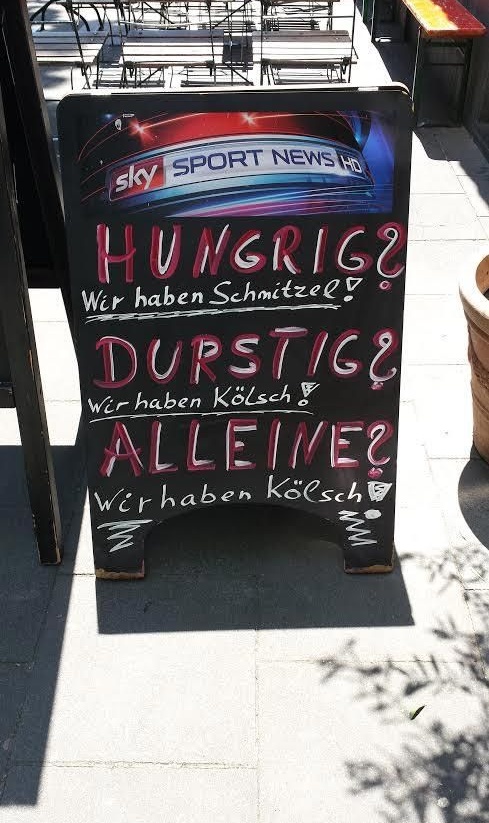 sky SPORT NEWS HD
HUNGRIG?
Wir haben Schmitzel!
DURSTIG?
Wir haben Kölsch!
ALLEINE?
Wir haben Kölsch!